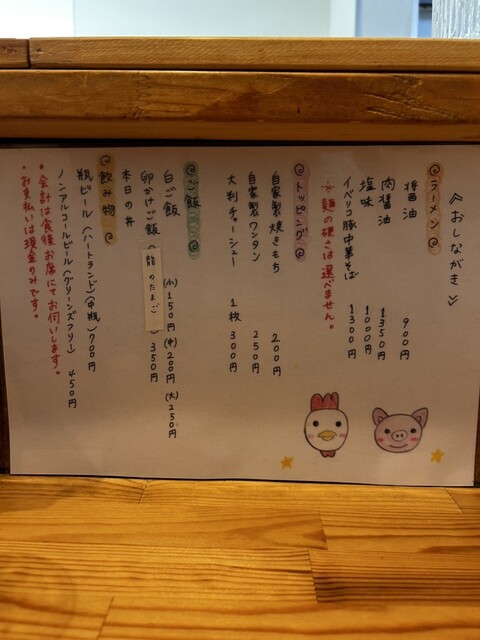 《おしながき》
ラーメン
醤油 900円
肉醤油 1350円
塩味 1000円
イベリコ豚中華そば 1300円
※麺の硬さは選べません。
トッピング
自家製焼きもち 200円
自家製ワンタン 250円
大判チャーシュー 1枚 300円
ご飯
白ご飯 (小)150円 (中)200円 (大)250円
卵かけご飯(龍のたまご) 350円
本日の丼
飲み物
瓶ビール(ハートランド)(中瓶)700円
ノンアルコールビール(グリーンズフリー) 450円
・会計は食後お席にてお伺いします。
・お支払いは現金のみです。